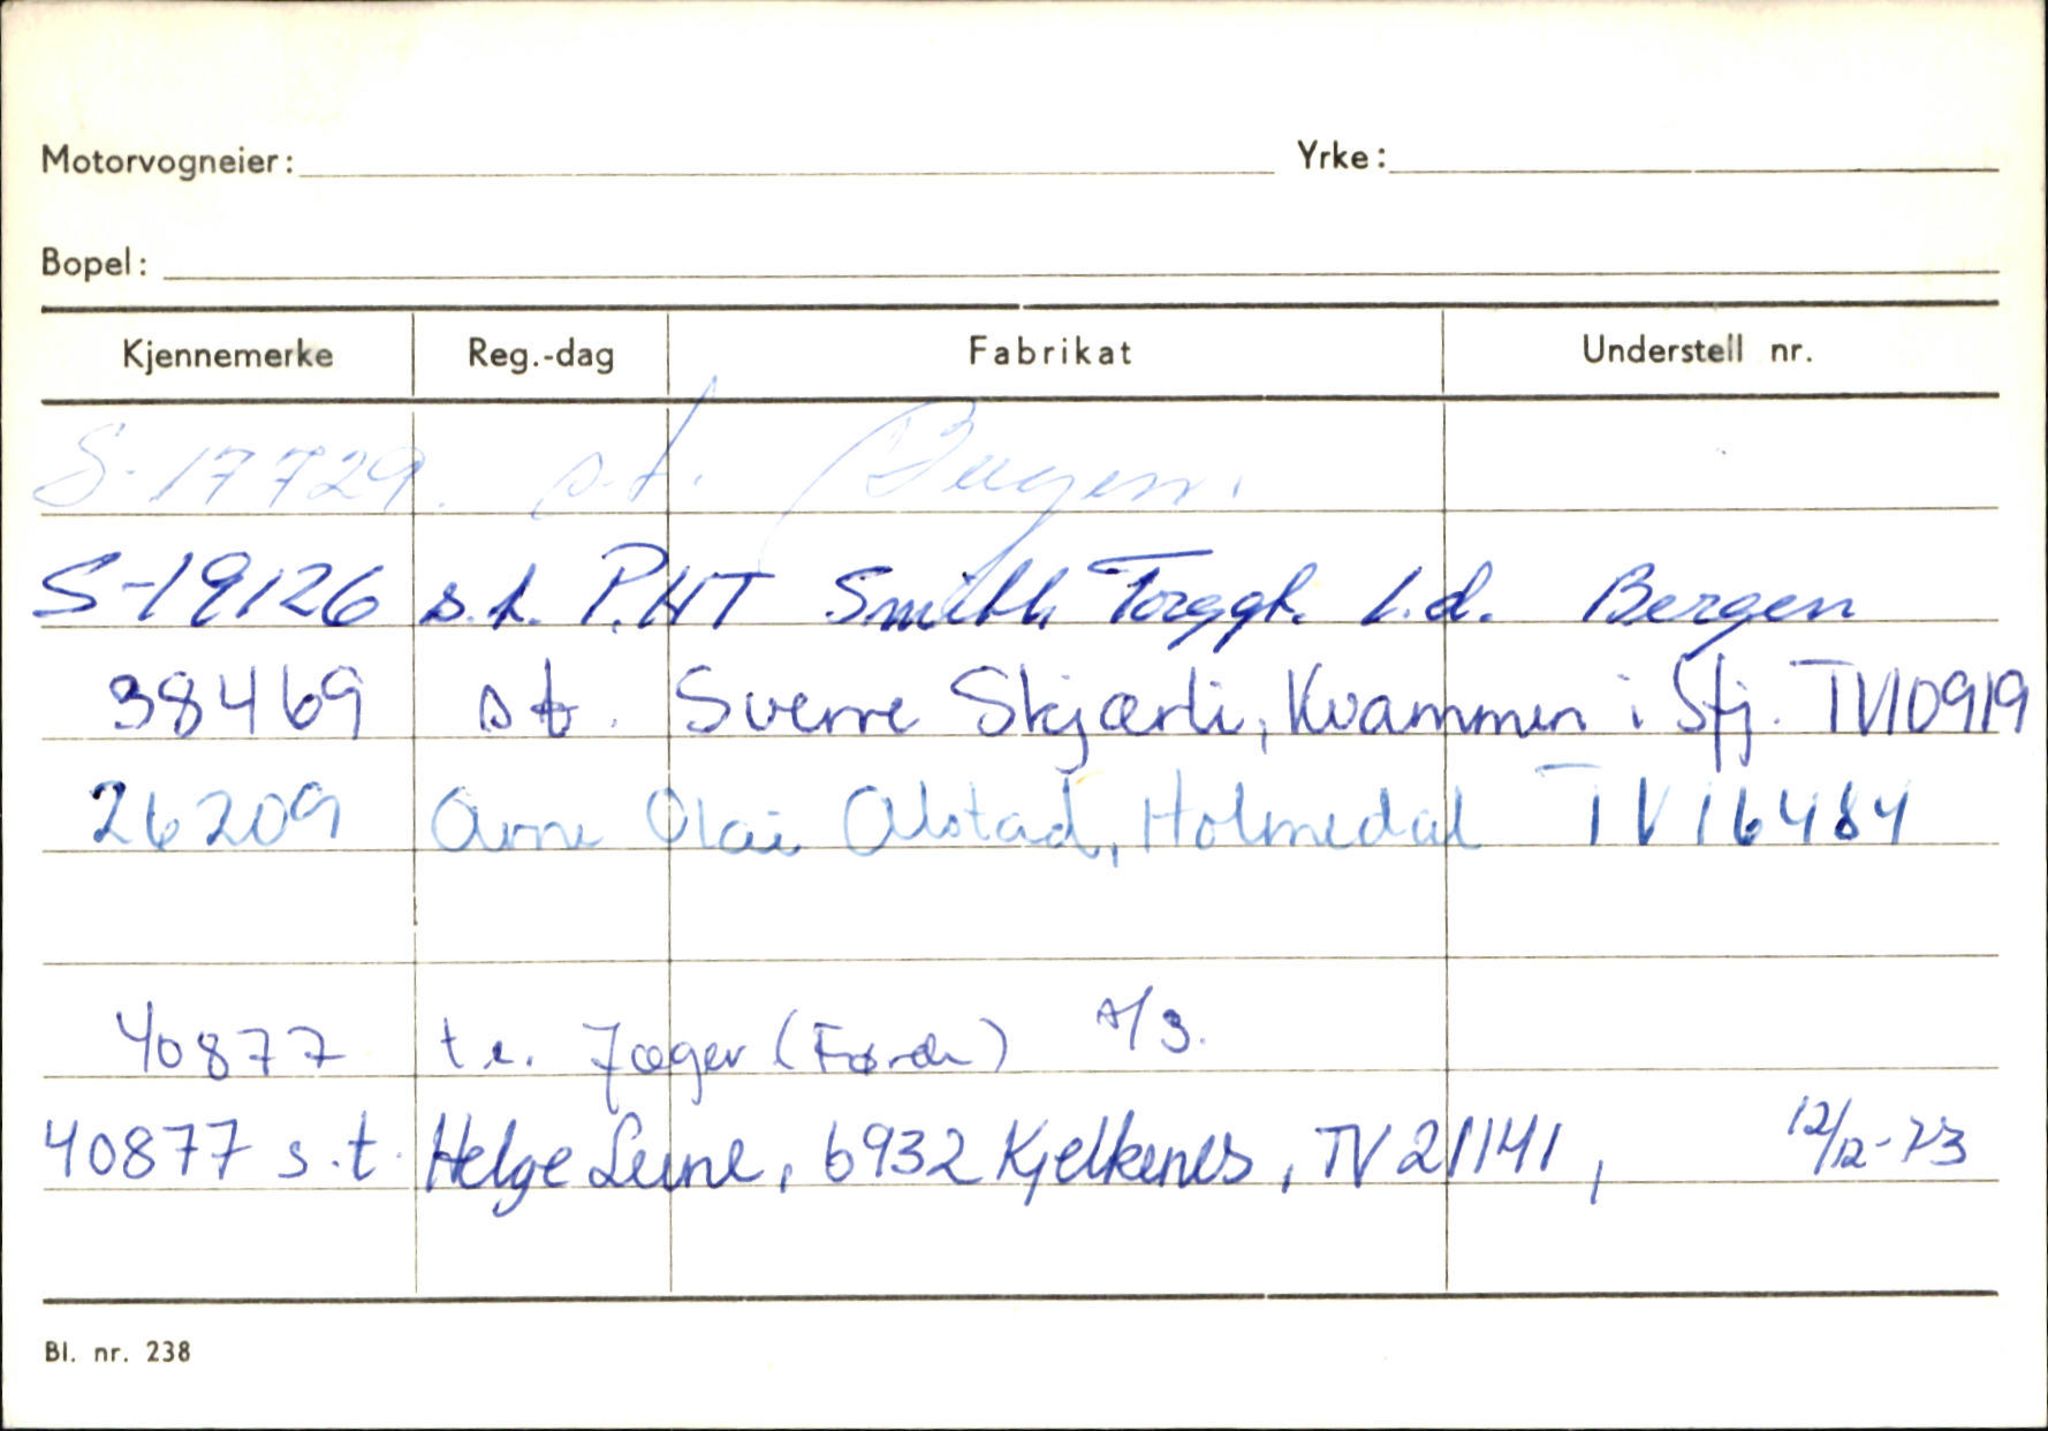 Motorvogneier: Yrke:
Bopel:
Kjennemerke Reg.-dag Fabrikat Understell nr.
S-17729. s.t. Bergen.
S-19126 s.t. P.HT Smith Torggt. 1.d. Bergen
38469 st. Sverre Skjærli, Kvammen i Sfj. TV10919
26209 Arne Olai Alstad, Holmedal TV16484
40877 t.e. Jæger (Førde) /3.
40877 s.t. Helge Leine, 6932 Kjelkenes, TV21141, 12/12-73
Bl. nr. 238